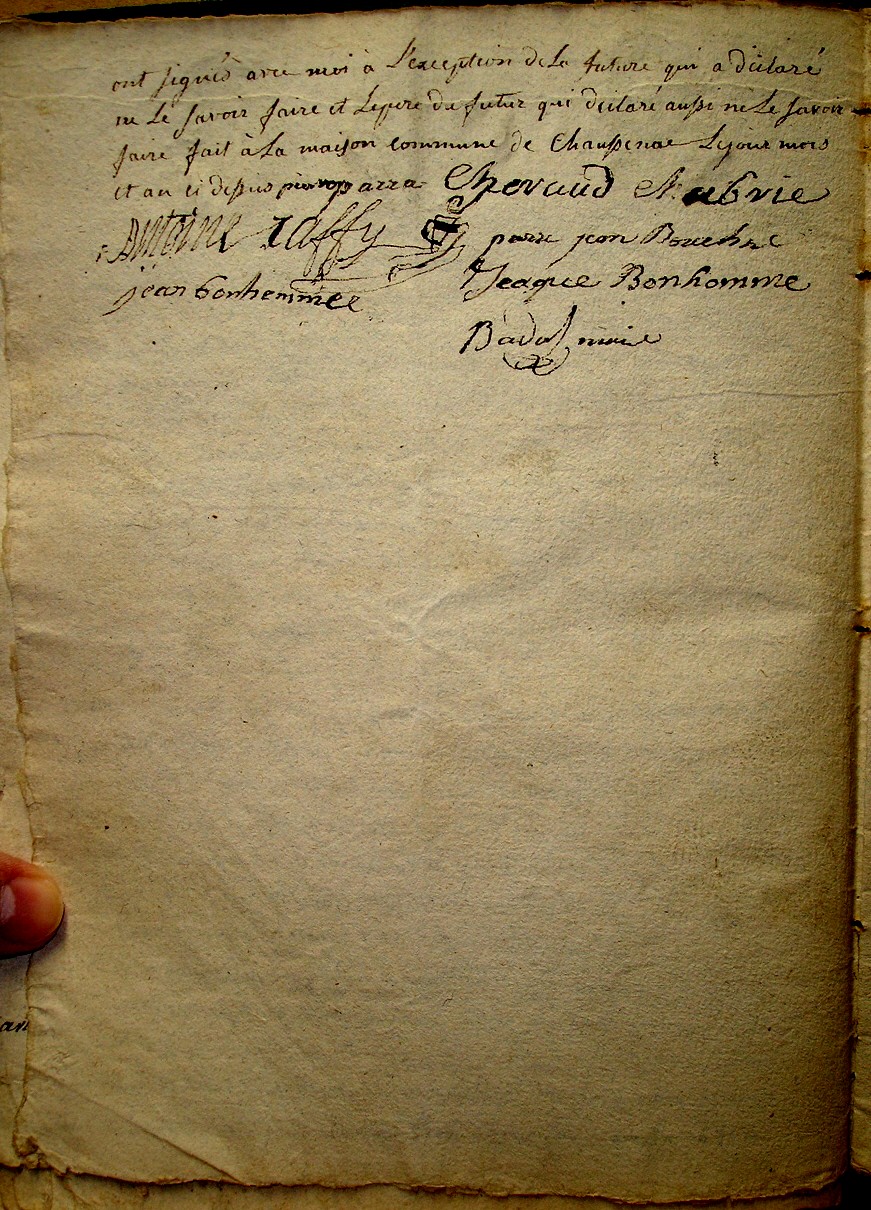 ont signés avec moi à L'exception de La future qui a déclaré
ne Le savoir faire et Le pere du futur qui déclaré aussi ne Le savoir
faire fait à La maison commune de Chaussenac Le jour mois
et an ci dessus parra Cheraud
Antoine Laffy
jean
jean bonhommee Jeaque Bonhomme
Badal maire